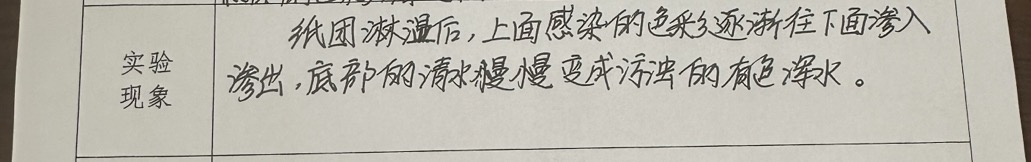 纸团淋湿后，上面感染的色彩逐渐往下面渗入
实验
现象
渗出，底部的清水慢慢变成污浊的有色浑水。